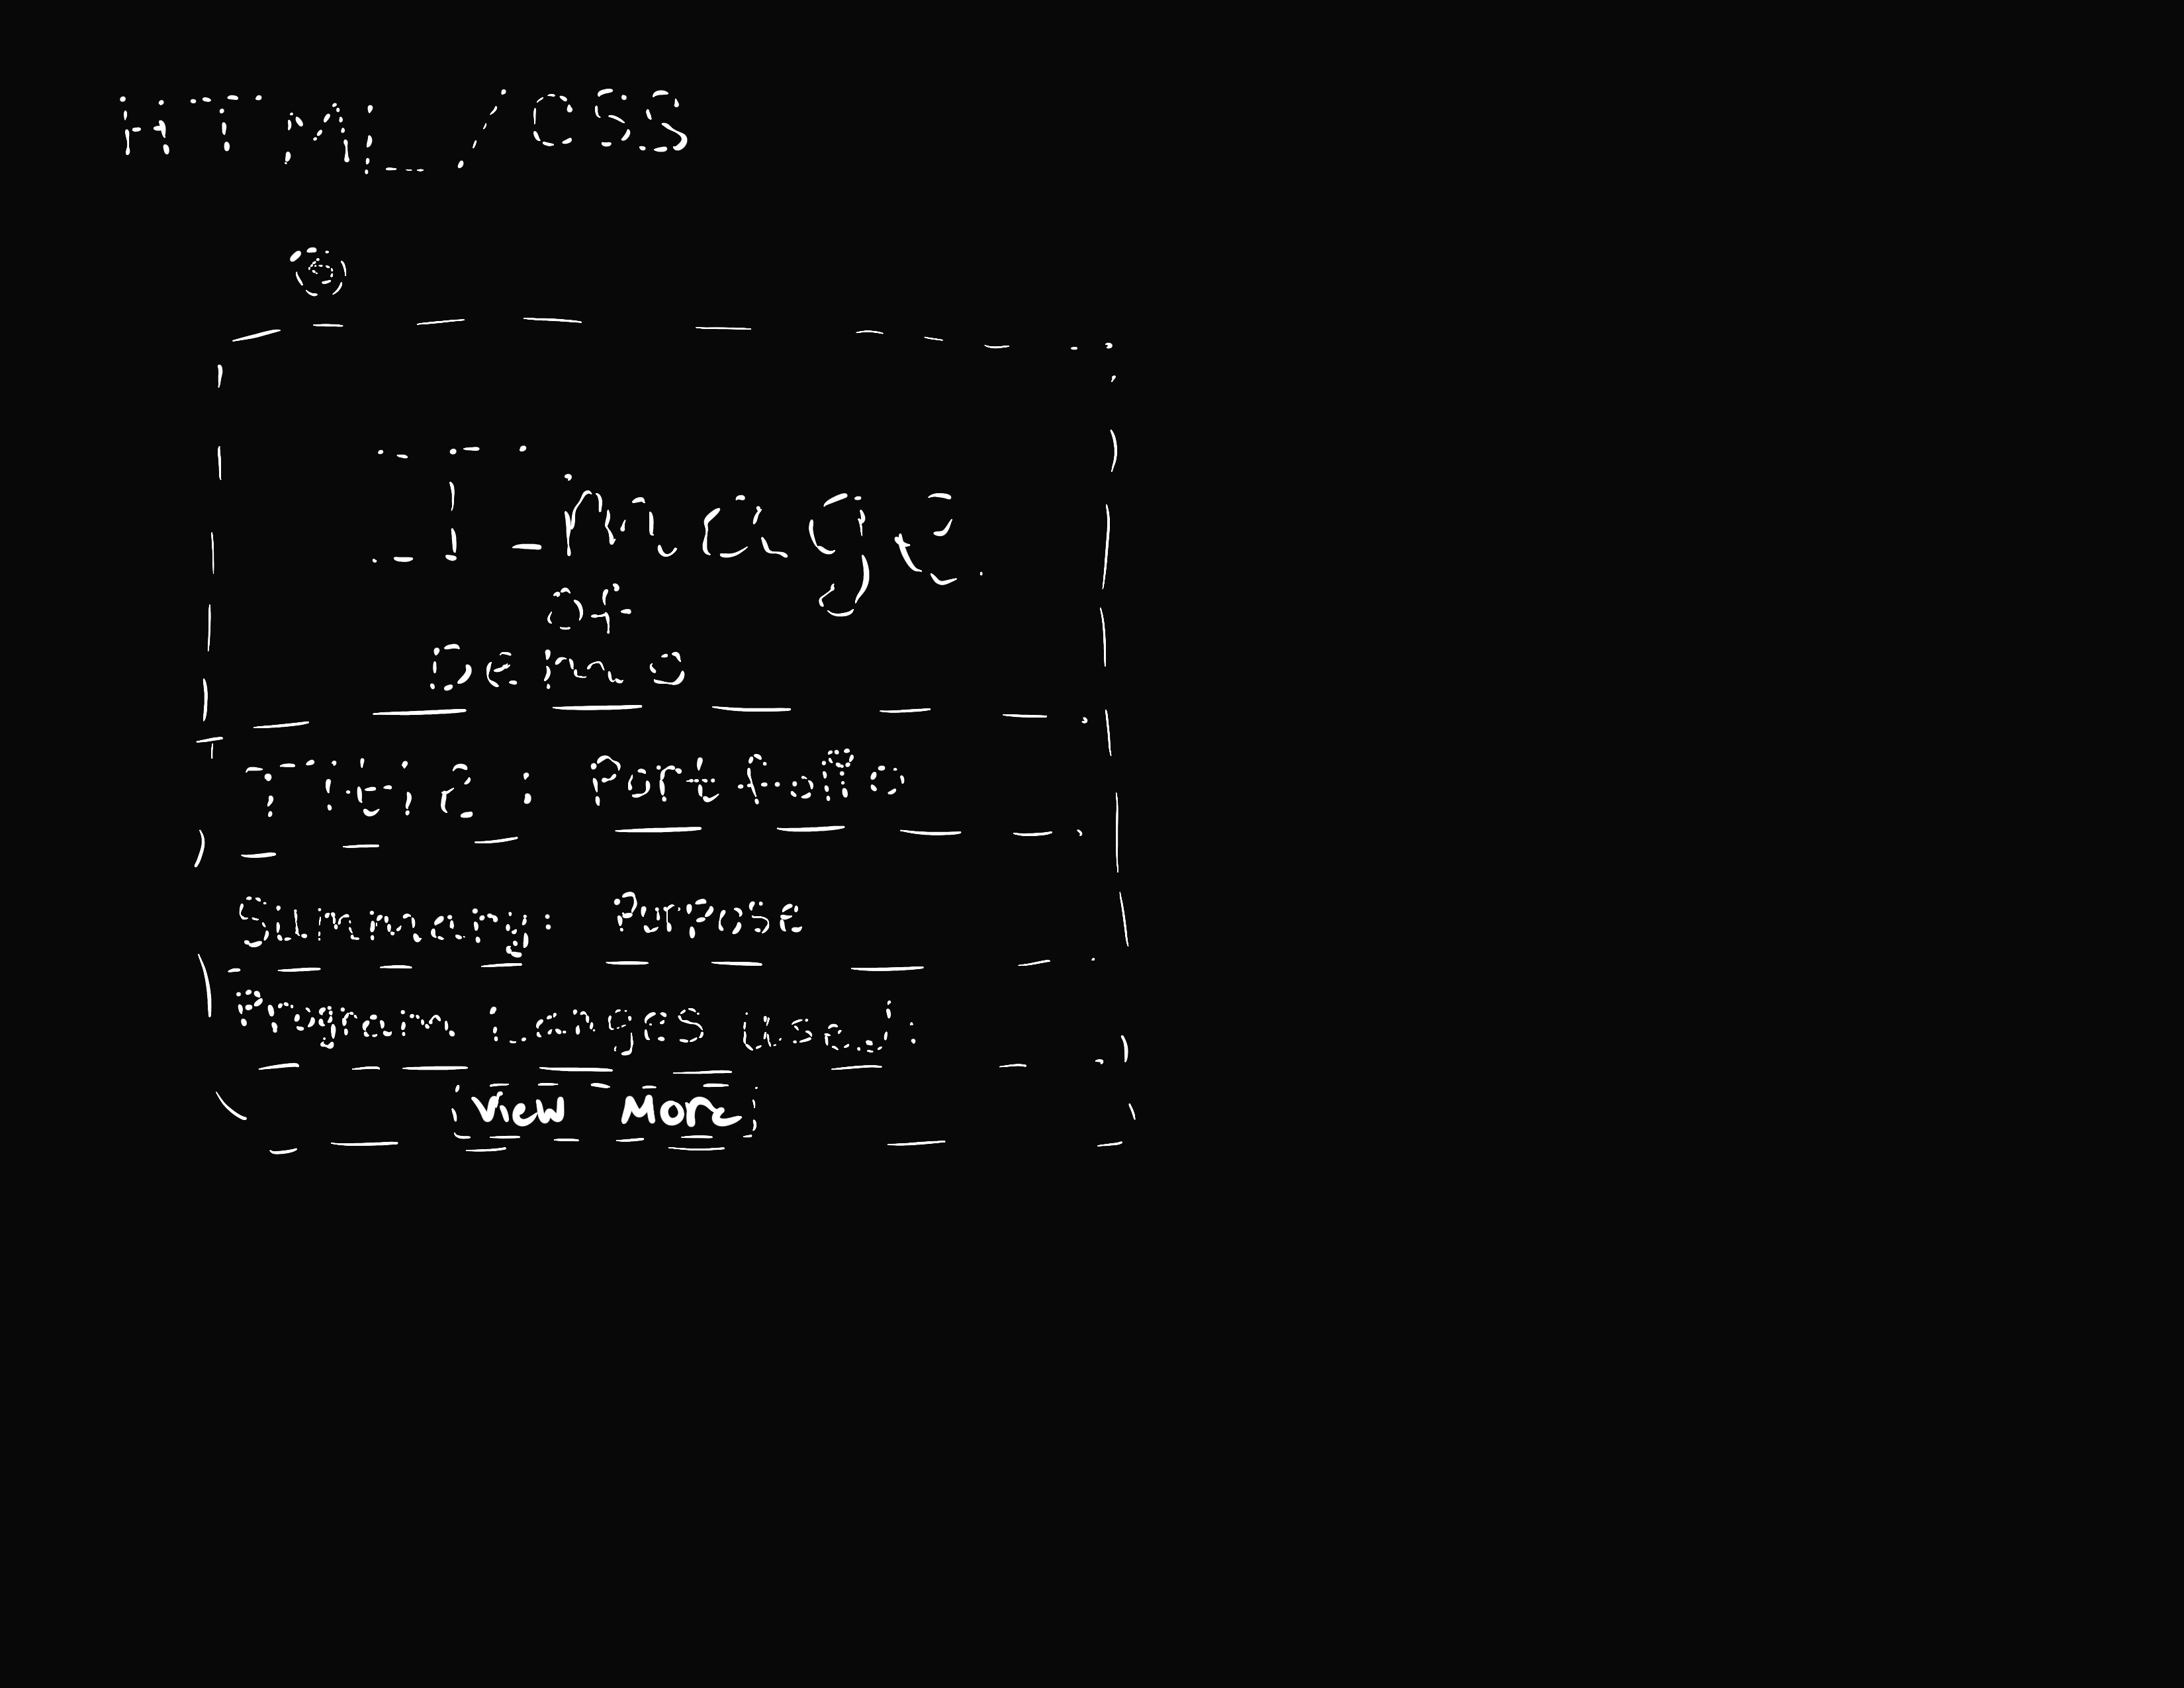 HTML/CSS
Image
of
Demo
Title : Portfolio
Summary: Purpose
Program Langes Used:
View More